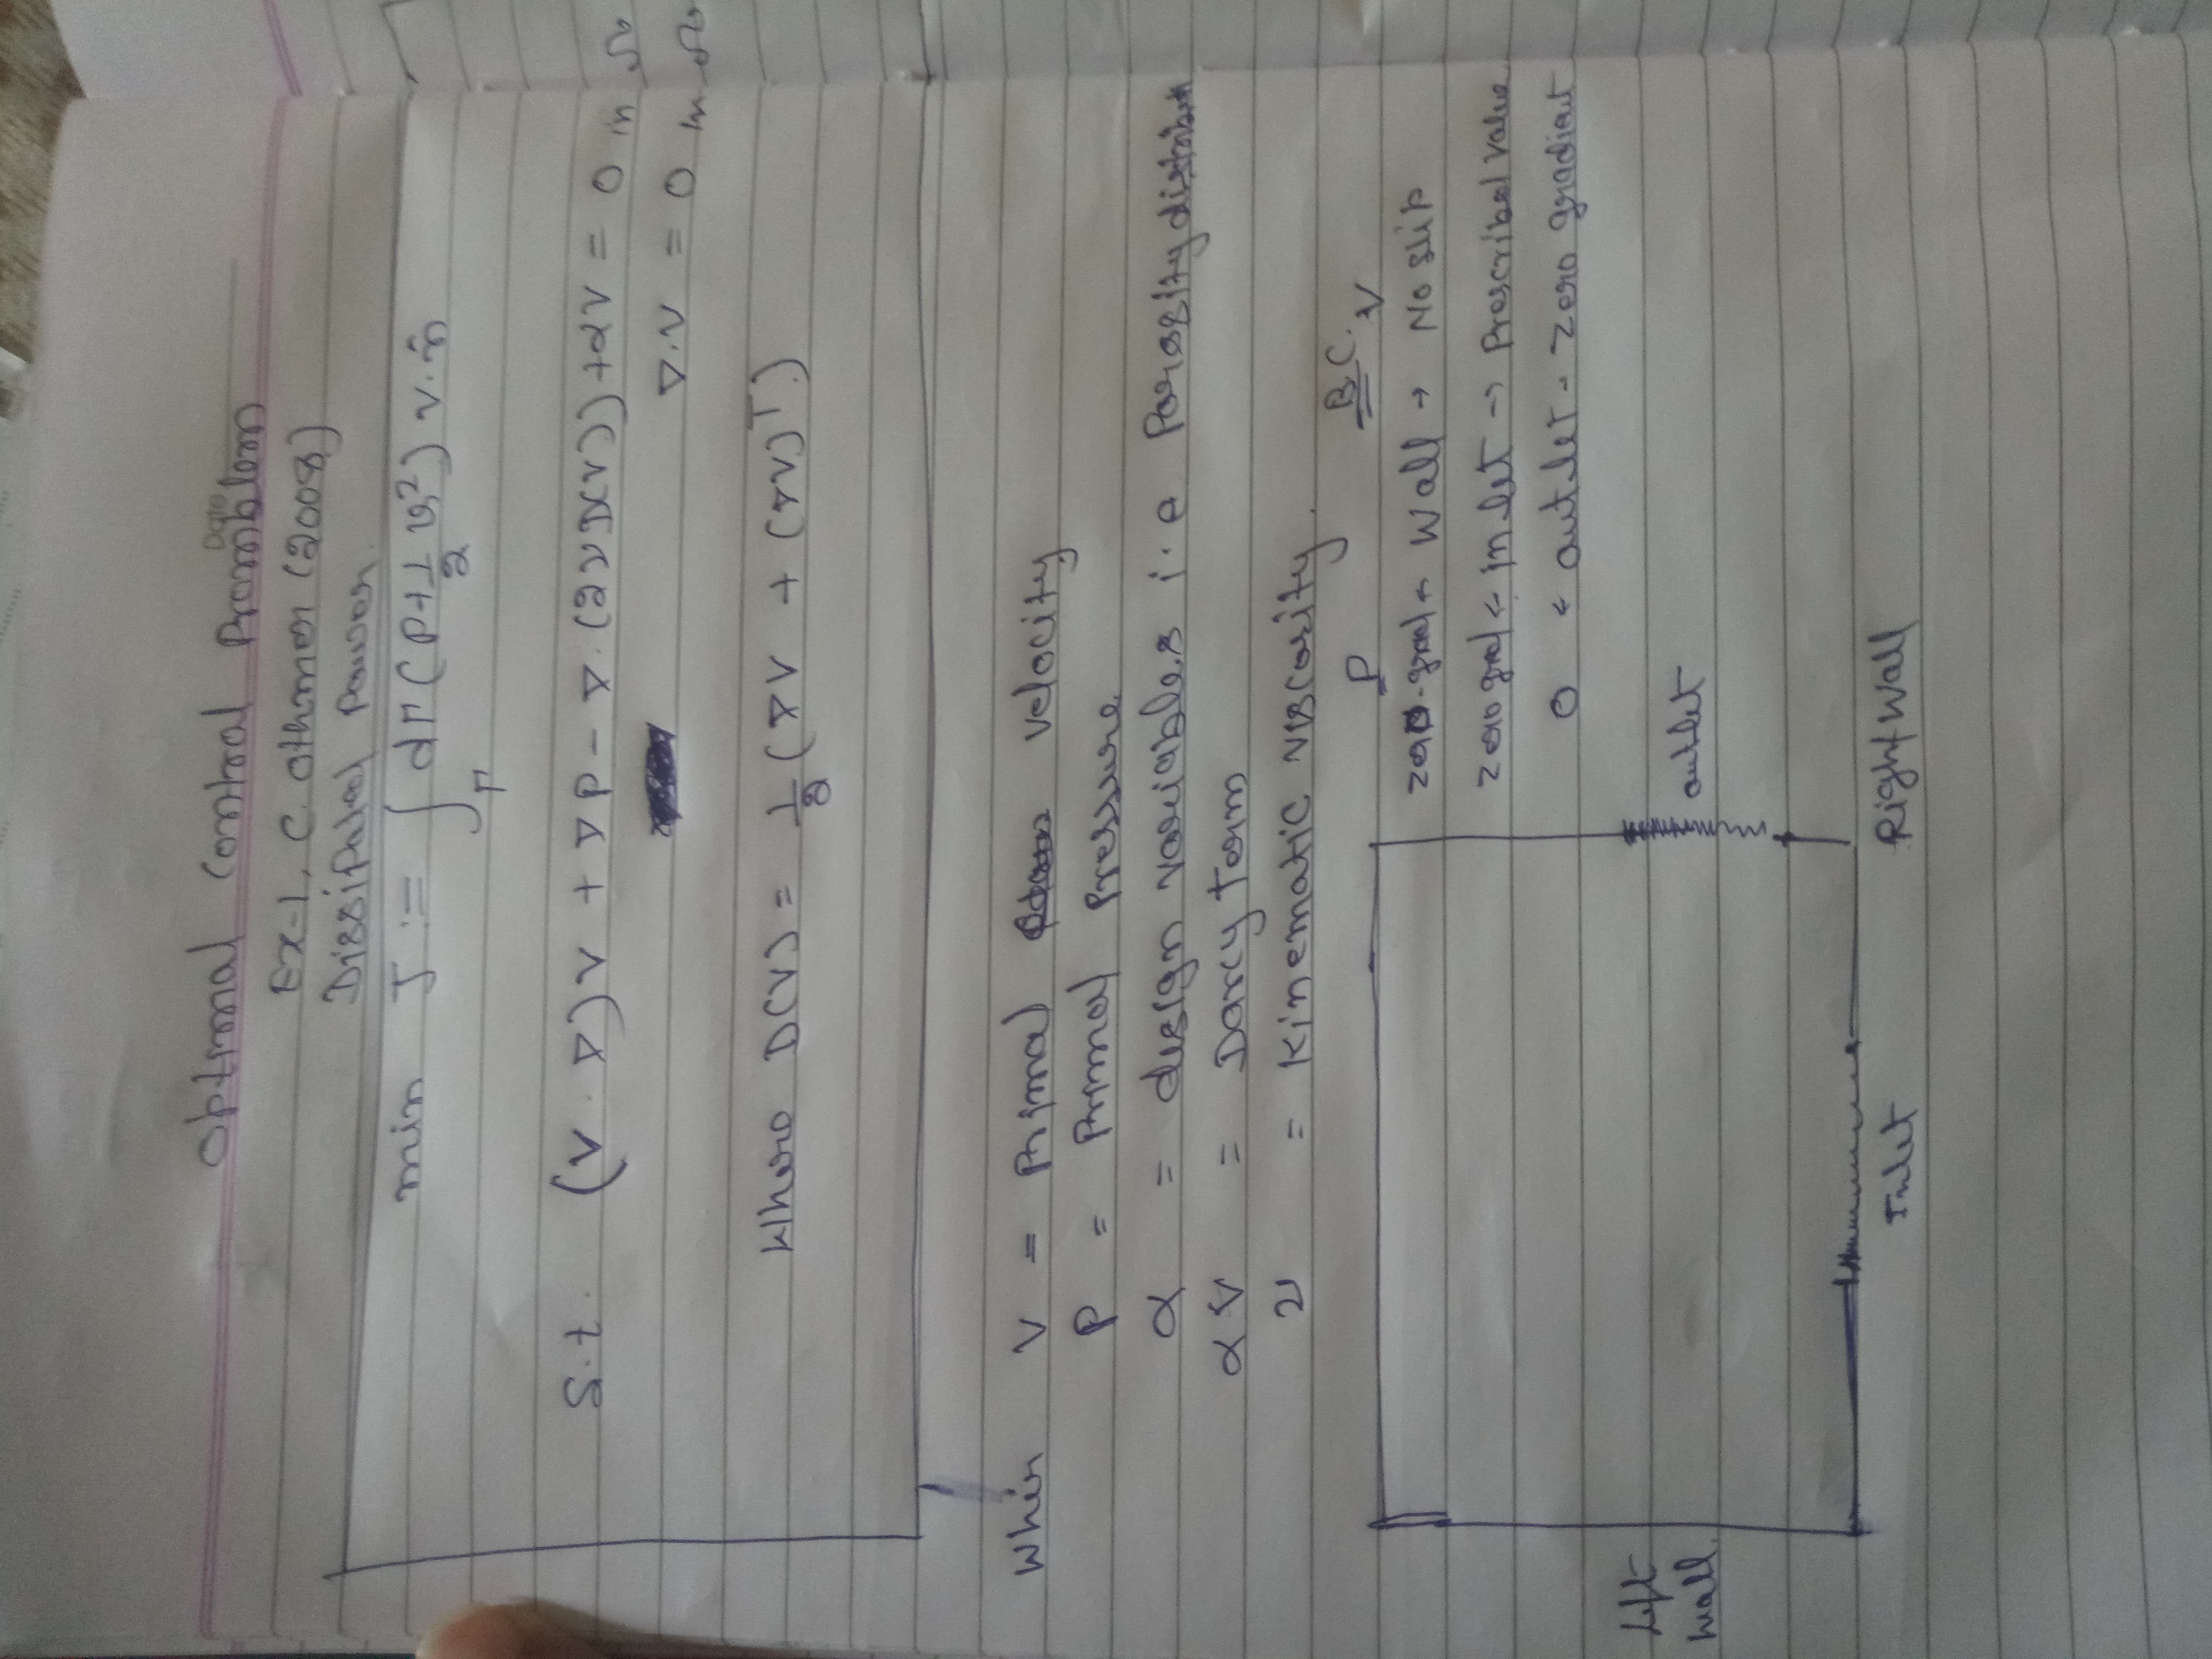 Date
Optimal Control Promblem
Ex-1. C. Othmer (2008)
Dissipated Power.
min J := ∫_Γ dΓ (P + 1/2 v²) v.n̂
S.t. (V.∇)V + ∇P - ∇.(2νD(V)) + αV = 0 in Ω
∇.V = 0 in Ω
Where D(V) = 1/2 (∇V + (∇V)^T)
Wher V = Primal velocity
P = Primal Pressure
α = design variables i.e Porosity
αV = Darcy term
ν = Kinematic viscosity.
P B.C. V
zero-grad ← Wall → No slip
zero grad ← inlet → Prescribed value
0 ← outlet - zero gradient
Left
wall.
outlet
Inlet
Right Wall